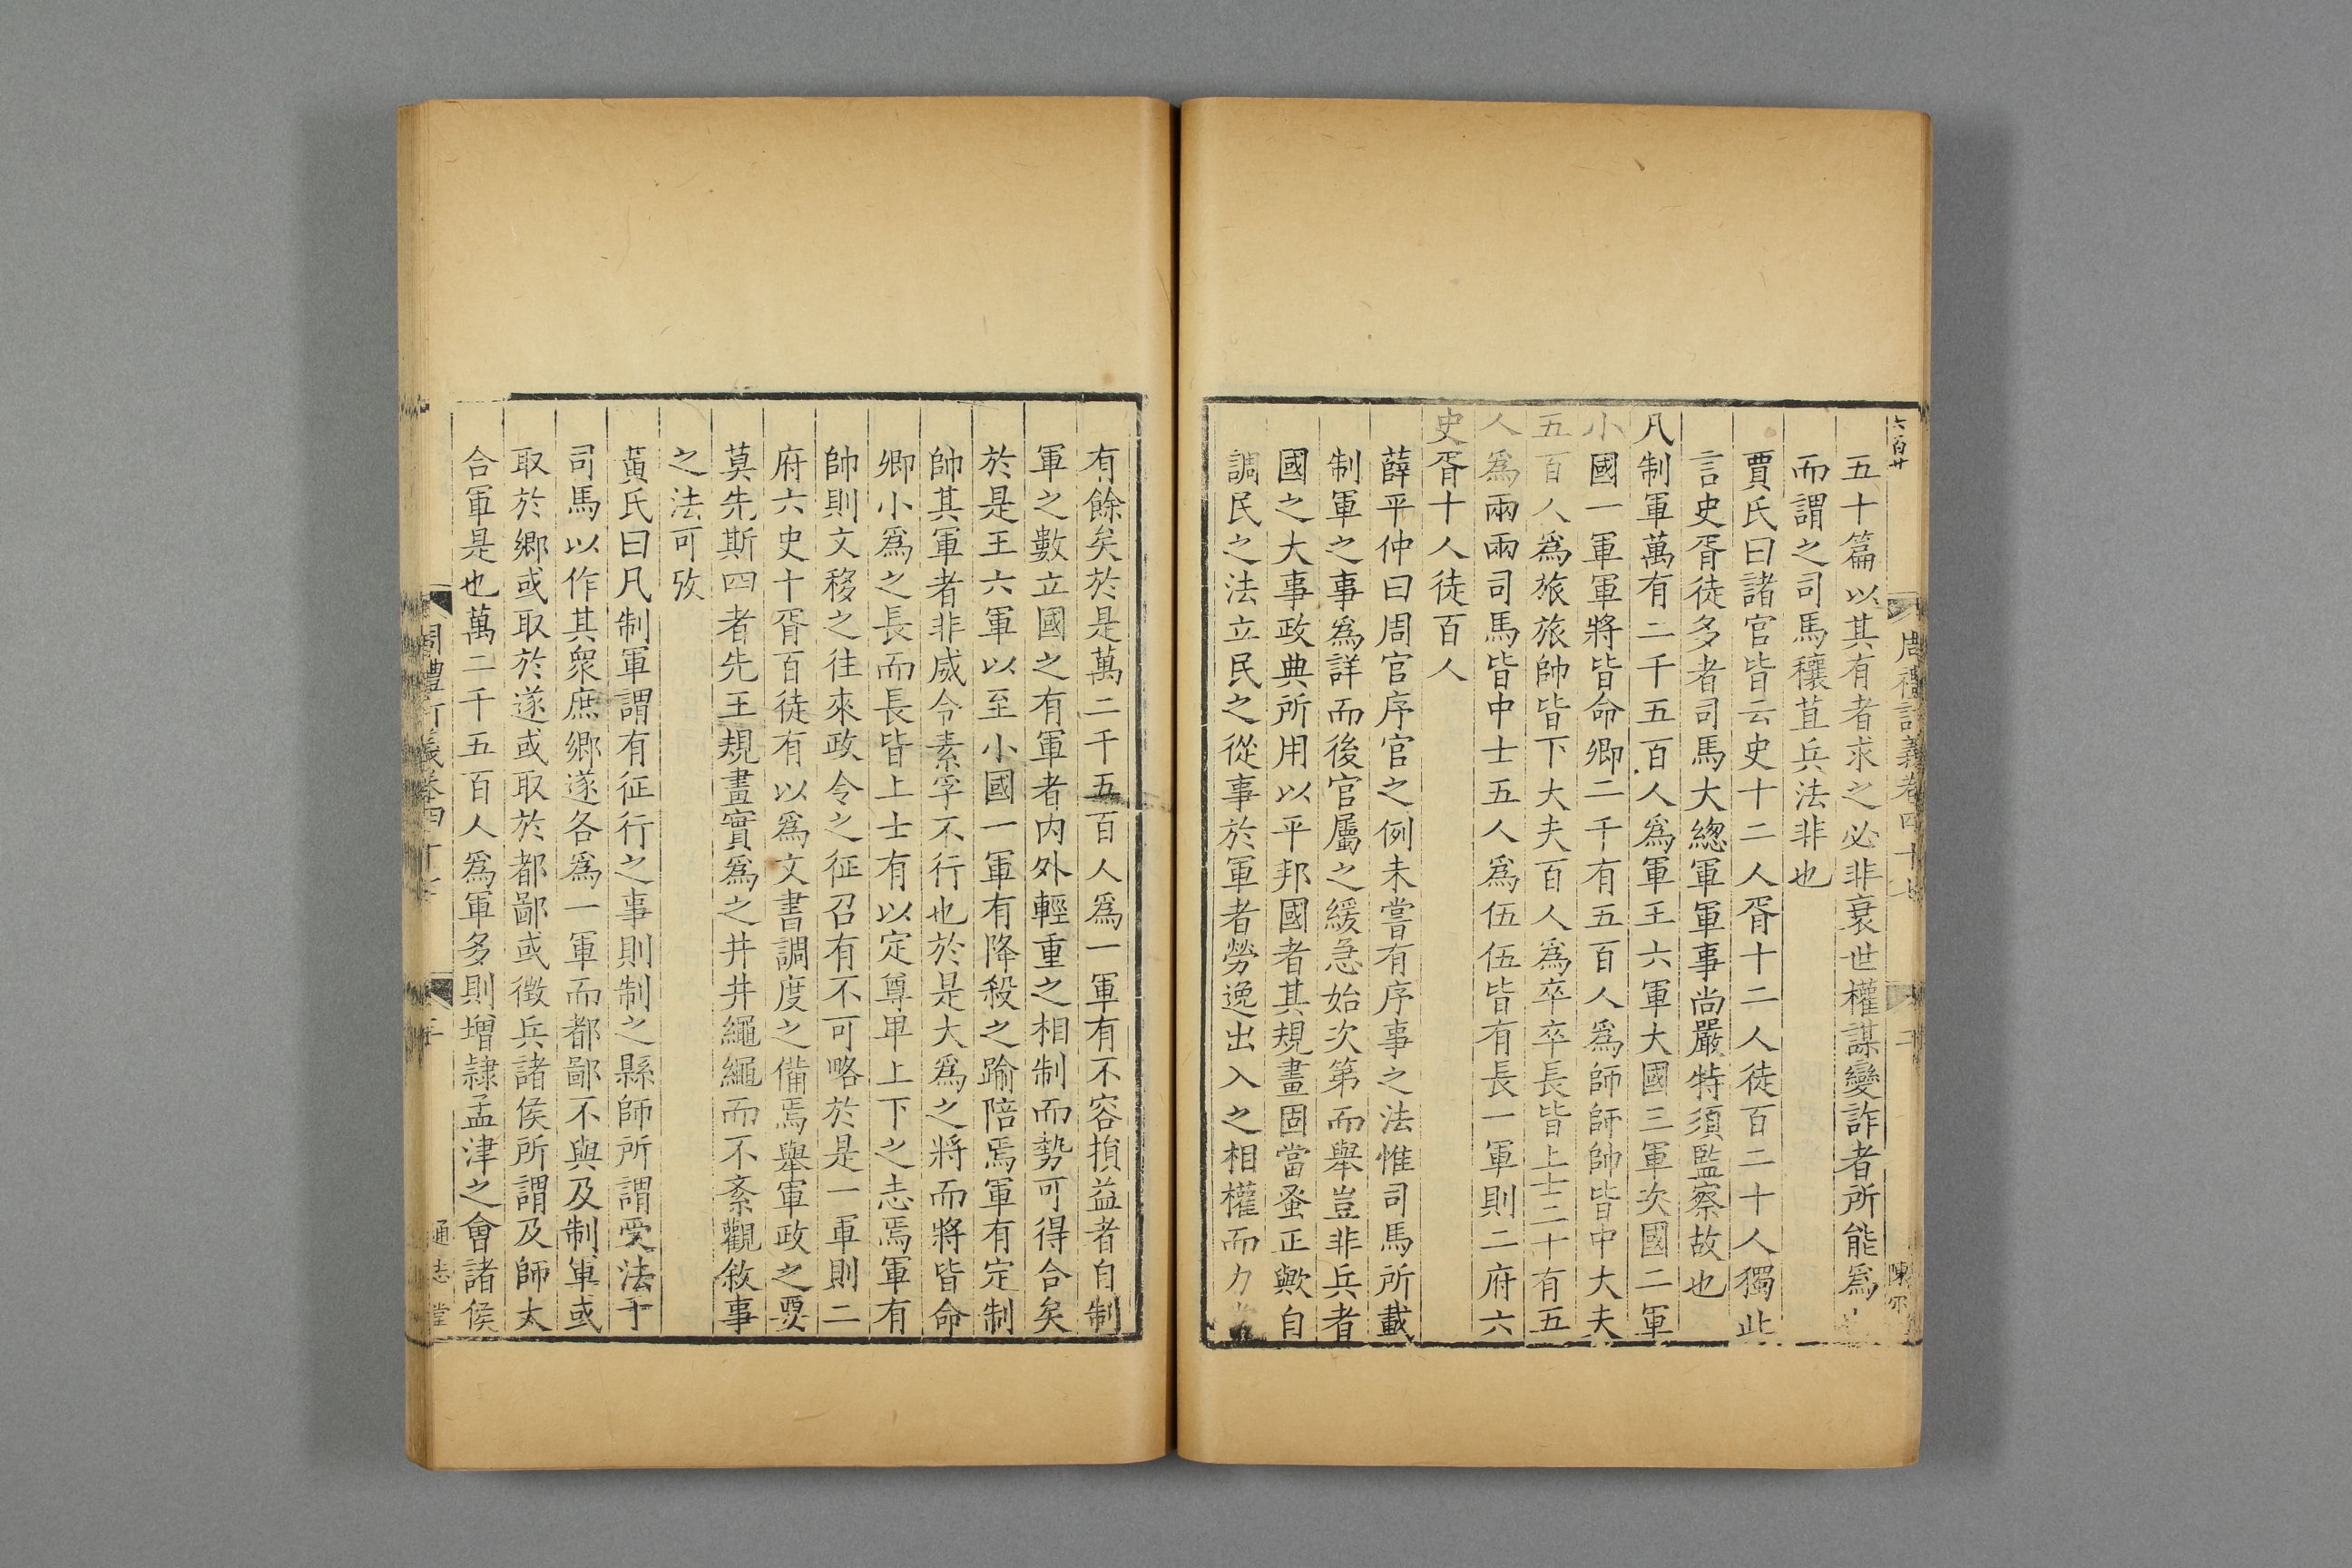 六百廿
周禮訂義卷四十七
二
陳
五十篇以其有者求之必非衰世權謀變詐者所能爲
而謂之司馬穰苴兵法非也
賈氏曰諸官皆云史十二人胥十二人徒百二十人獨此
言史胥徒多者司馬大總軍軍事尚嚴特須監察故也
凡制軍萬有二千五百人爲軍王六軍大國三軍次國二軍
小國一軍軍將皆命卿二千有五百人爲師師帥皆中大夫
五百人爲旅旅帥皆下大夫百人爲卒卒長皆上士二十有五
人爲兩兩司馬皆中士五人爲伍伍皆有長一軍則二府六
史胥十人徒百人
薛平仲曰周官序官之例未嘗有序事之法惟司馬所載
制軍之事爲詳而後官屬之緩急始次第而舉豈非兵者
國之大事政典所用以平邦國者其規畫固當蚤正歟自
調民之法立民之從事於軍者勞逸出入之相權而力
有餘矣於是萬二千五百人爲一軍有不容損益者自制
軍之數立國之有軍者內外輕重之相制而勢可得合矣
於是王六軍以至小國一軍有降殺之踰陪焉軍有定制
帥其軍者非威令素孚不行也於是大爲之將而將皆命
卿小爲之長而長皆上士有以定尊卑上下之志焉軍有
帥則文移之往來政令之征召有不可略於是一軍則二
府六史十胥百徒有以爲文書調度之備焉舉軍政之要
莫先斯四者先王規畫實爲之井井繩繩而不紊觀敘事
之法可攷
黃氏曰凡制軍謂有征行之事則制之縣師所謂受法于
司馬以作其衆庶鄉遂各爲一軍而都鄙不與及制軍或
取於鄉或取於遂或取於都鄙或徵兵諸侯所謂及師大
合軍是也萬二千五百人爲軍多則增隷孟津之會諸侯
周禮訂義卷四十七
通志堂